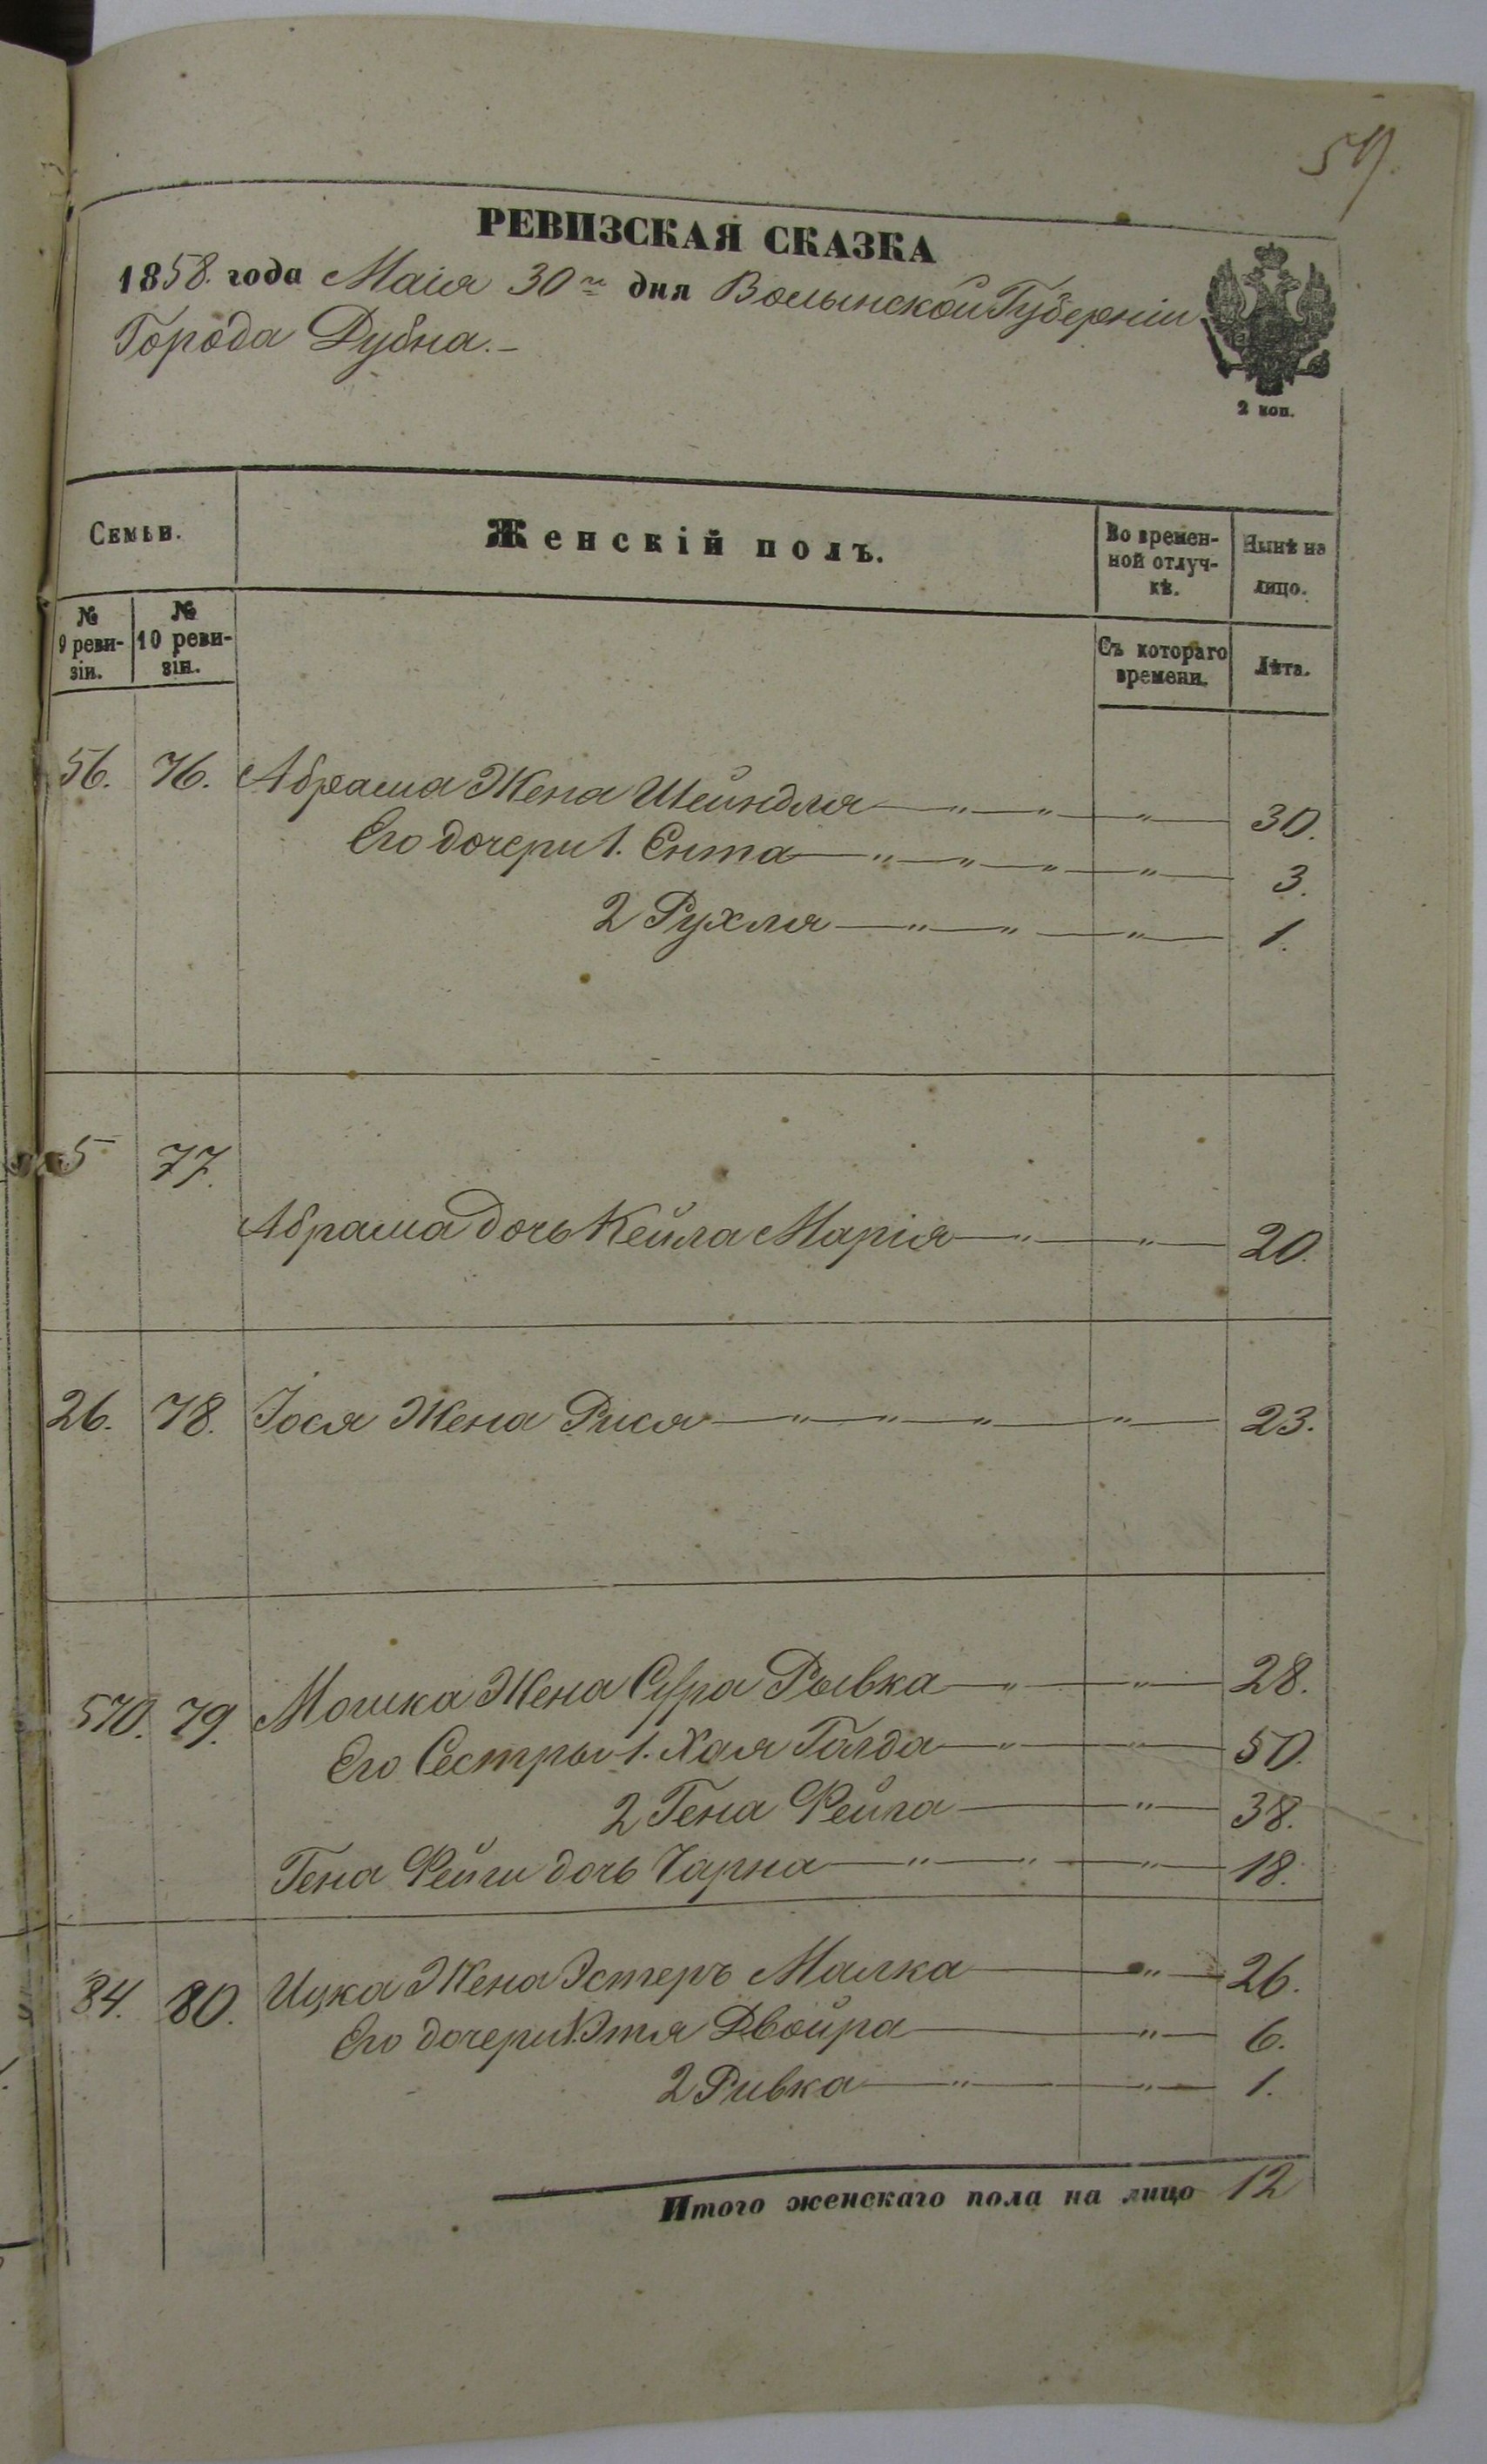 57.
РЕВИЗСКАЯ СКАЗКА
1858. года Маія 30го дня Волынской Губерніи
Города Дубна.-
2 коп.
Семьи.
Женскій полъ.
Во времен-
ной отлуч-
кѣ.
Нынѣ на
лицо.
№
9 реви-
зіи.
№
10 реви-
зіи.
Съ котораго
времени.
Лѣта.
56. 76. Абрама Жена Шейндля — " — " — " — 30.
Его дочери 1. Ента — " — " — " — " — 3.
2 Рухля — " — " — " — 1.
5 77.
Абрама дочь Кейла Марія — " — " — 20.
26. 78. Іося Жена Рися — " — " — " — " — 23.
570. 79. Мошка Жена Сура Рывка — " — " — 28.
Его Сестры 1. Хая Голда — " — " — 50.
2 Гена Фейга — " — 38.
Гена Фейги дочь Чарна — " — " — " — 18.
84. 80. Ицка Жена Эстеръ Малка — " — 26.
Его дочери 1. Этя Двойра — " — 6.
2 Ривка — " — " — 1.
Итого женскаго пола на лицо 12